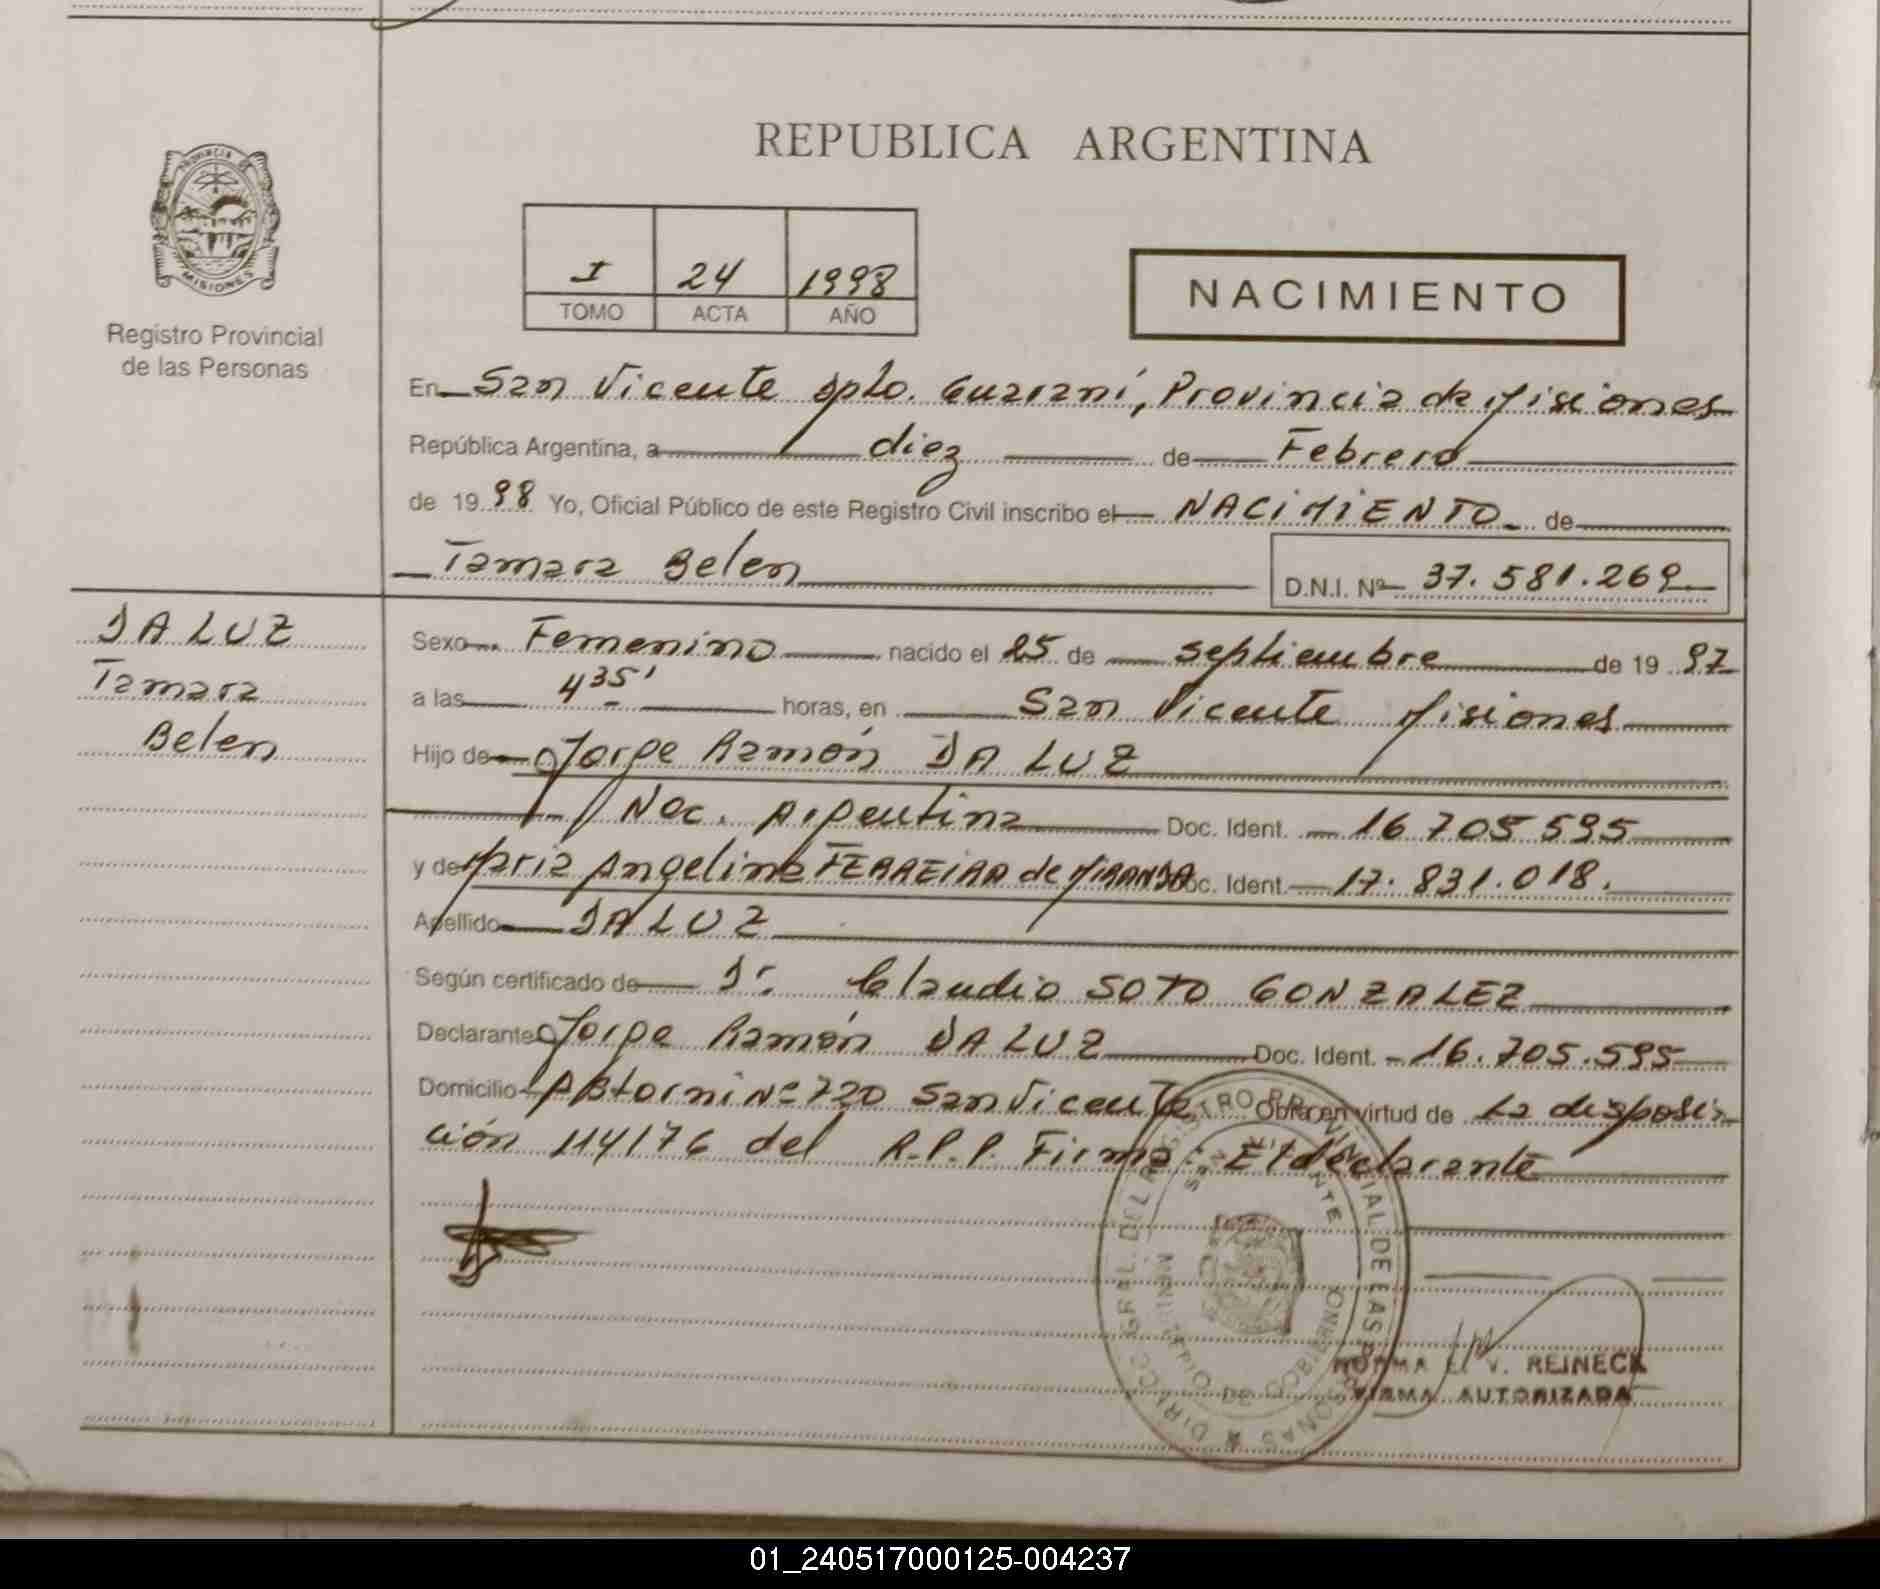 REPUBLICA ARGENTINA
PROVINCIA DE
MISIONES
Registro Provincial
de las Personas
I 24 1998
TOMO ACTA AÑO
NACIMIENTO
En San Vicente Dpto. Guaraní, Provincia de Misiones
República Argentina, a diez de Febrero
de 19 98 Yo, Oficial Público de este Registro Civil inscribo el NACIMIENTO de
Tamara Belen D.N.I. Nº 37.581.269
DA LUZ
Tamara
Belen
Sexo Femenino nacido el 25 de septiembre de 19 97
a las 4 35' horas, en San Vicente Misiones
Hijo de Jorge Ramón DA LUZ
Nac. Argentina Doc. Ident. 16 705 595
y de Maria Angelina FERREIRA de MIRANDA Doc. Ident. 17.831.018.
Apellido DA LUZ
Según certificado de Dr. Claudio SOTO GONZALEZ
Declarante Jorge Ramón DA LUZ Doc. Ident. 16.705.595
Domicilio Nº 720 San Vicente Obra en virtud de La disposi-
ción 114/76 del R.P.P. Firma: El declarante
DIRECC. GRAL. DEL REGISTRO PROVINCIAL DE LAS PERSONAS
SAN VICENTE
MINISTERIO DE GOBIERNO
NORMA V. REINECK
FIRMA AUTORIZADA
01_240517000125-004237